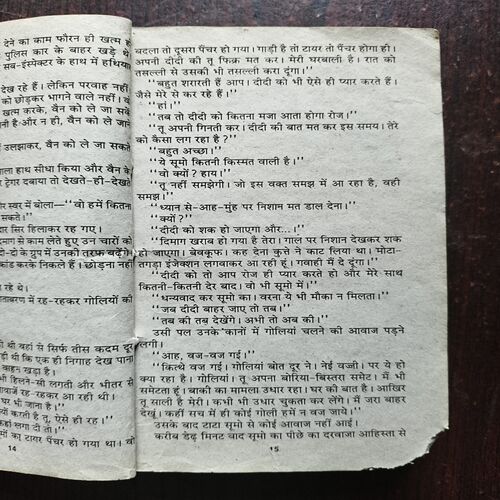 देने का काम फौरन ही खत्म ह
पुलिस कार के बाहर खड़े थे
सब-इंस्पेक्टर के हाथ में हथिया
देख रहे हैं। लेकिन परवाह नहीं
को छोड़कर भागने वाले नहीं।
खत्म करके, वैन को ले जा सके
नी है और न ही, वैन को ले जाने
उलझाकर, वैन को ले जा सकते
ला हाथ सीधा किया और वैन के
ट्रेगर दबाया तो देखते-ही-देखते
स्वर में बोला—‘‘वो हमें कितना
सकते।’’
सिर हिलाकर रह गए।
दिमाग से काम लेते हुए उन चारों को
दो-दो के ग्रुप में उनकी तरफ बढ़ेंगे
कांड करके निकले हैं। छोड़ना नहीं
रहे थे।
वातावरण में रह-रहकर गोलियों की
थी वहां से सिर्फ तीस कदम दूर
ड़ी थी कि एक ही निगाह देख पाना
वाहन खड़ा है।
हिलने-सी लगती और भीतर से
आवाजें रह-रहकर आ रही थी।
घर भी जाना है।’’
करती है तू, ऐसे ही रह।’’
लगा दी तो।’’
मो का टायर पैंचर हो गया था। वो
14
बदला तो दूसरा पैंचर हो गया। गाड़ी है तो टायर तो पैंचर होगा ही।
अपनी दीदी की तू फिक्र मत कर। मेरी घरवाली है। रात को
तसल्ली से उसकी भी तसल्ली करा दूंगा।’’
‘‘बहुत शरारती हैं आप। दीदी को भी ऐसे ही प्यार करते हैं।
जैसे मेरे से कर रहे हैं।’’
‘‘हां।’’
‘‘तब तो दीदी को कितना मजा आता होगा रोज।’’
‘‘तू अपनी गिनती कर। दीदी की बात मत कर इस समय। तेरे
को कैसा लग रहा है?’’
‘‘बहुत अच्छा।’’
‘‘ये सूमो कितनी किस्मत वाली है।’’
‘‘वो क्यों? हाय।’’
‘‘तू नहीं समझेगी। जो इस वक्त समझ में आ रहा है, वही
समझ।’’
‘‘ध्यान से-आह-मुंह पर निशान मत डाल देना।’’
‘‘क्यों?’’
‘‘दीदी को शक हो जाएगा और...।’’
‘‘दिमाग खराब हो गया है तेरा। गाल पर निशान देखकर शक
हो जाएगा। बेवकूफ। कह देना कुत्ते ने काट लिया था। मोटा-
तगड़ा इंजेक्शन लगवाकर आ रही हूं। गवाही मैं दे दूंगा।’’
‘‘दीदी को तो आप रोज ही प्यार करते हो और मेरे साथ
कितनी-कितनी देर बाद। वो भी सूमो में।’’
‘‘धन्यवाद कर सूमो का। वरना ये भी मौका न मिलता।’’
‘‘जब दीदी बाहर जाए तो तब।’’
‘‘तब की तब देखेंगे। अभी तो अब की।’’
उसी पल उनके कानों में गोलियां चलने की आवाज पड़ने
लगी।
‘‘आह, वज-वज गई।’’
‘‘कित्थे वज गई। गोलियां बोत दूर ने। नेई वज्जी। पर ये हो
क्या रहा है। गोलियां। तू अपना बोरिया-बिस्तरा समेट। मैं भी
समेटता हूं। बाकी का मामला उधार रहा। घर की बात है। आखिर
तू साली है मेरी। कभी भी उधार चुकता कर लेंगे। मैं जरा बाहर
देखूं। कहीं सच में ही कोई गोली हमें न वज जाये।’’
उसके बाद टाटा सूमो से कोई आवाज नहीं आई।
करीब डेढ़ मिनट बाद सूमो का पीछे का दरवाजा आहिस्ता से
15